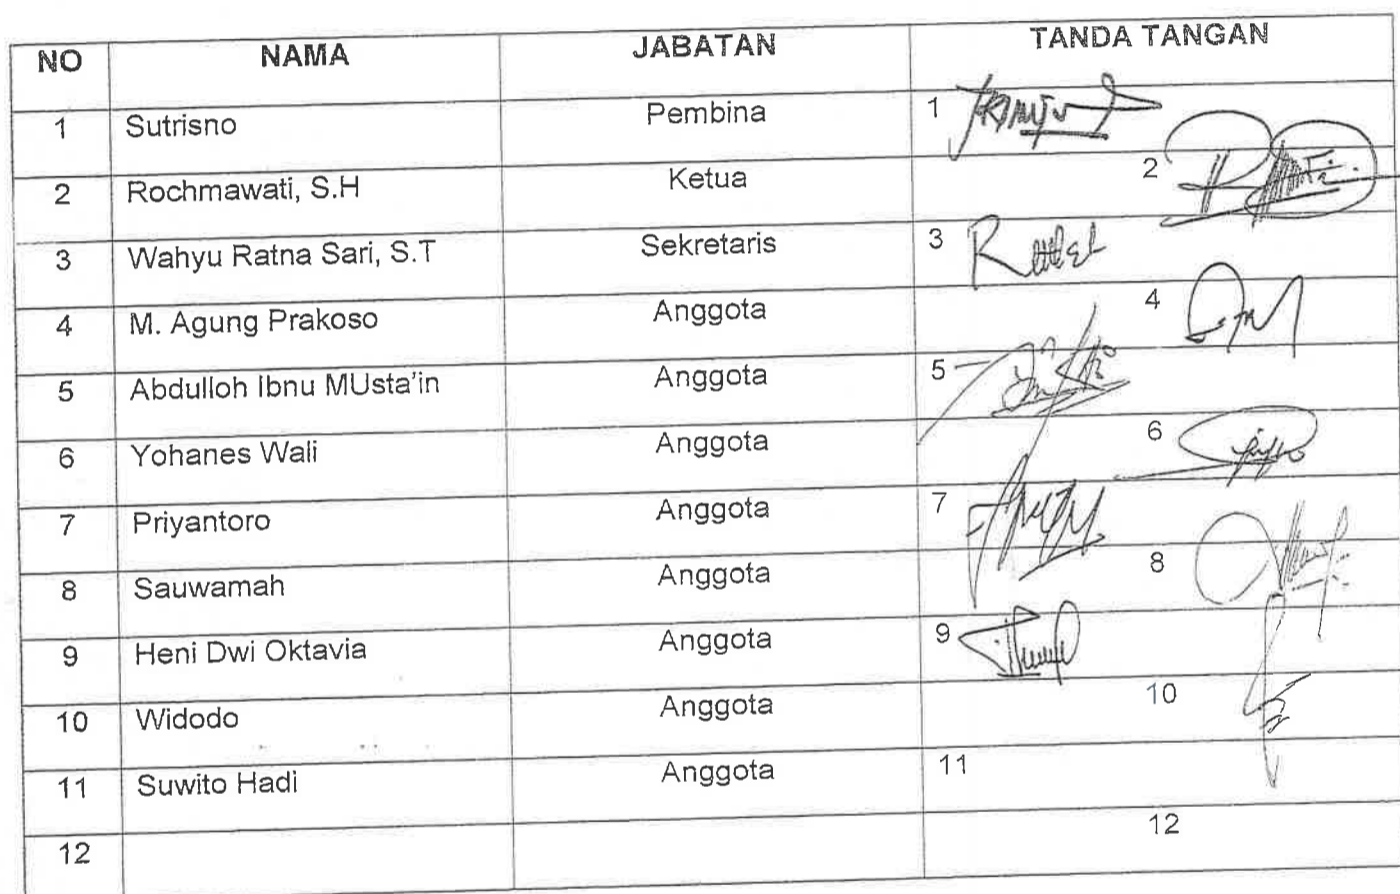 NO NAMA JABATAN TANDA TANGAN
1 Sutrisno Pembina 1
2 Rochmawati, S.H Ketua 2
3 Wahyu Ratna Sari, S.T Sekretaris 3
4 M. Agung Prakoso Anggota 4
5 Abdulloh Ibnu MUsta'in Anggota 5
6 Yohanes Wali Anggota 6
7 Priyantoro Anggota 7
8 Sauwamah Anggota 8
9 Heni Dwi Oktavia Anggota 9
10 Widodo Anggota 10
11 Suwito Hadi Anggota 11
12 12